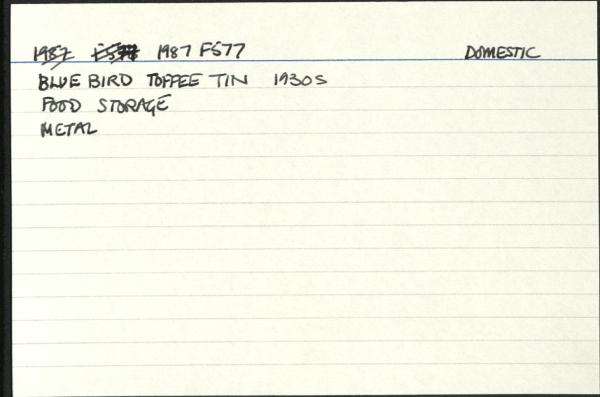 1987 1987 F577 DOMESTIC
BLUE BIRD TOFFEE TIN 1930S
FOOD STORAGE
METAL